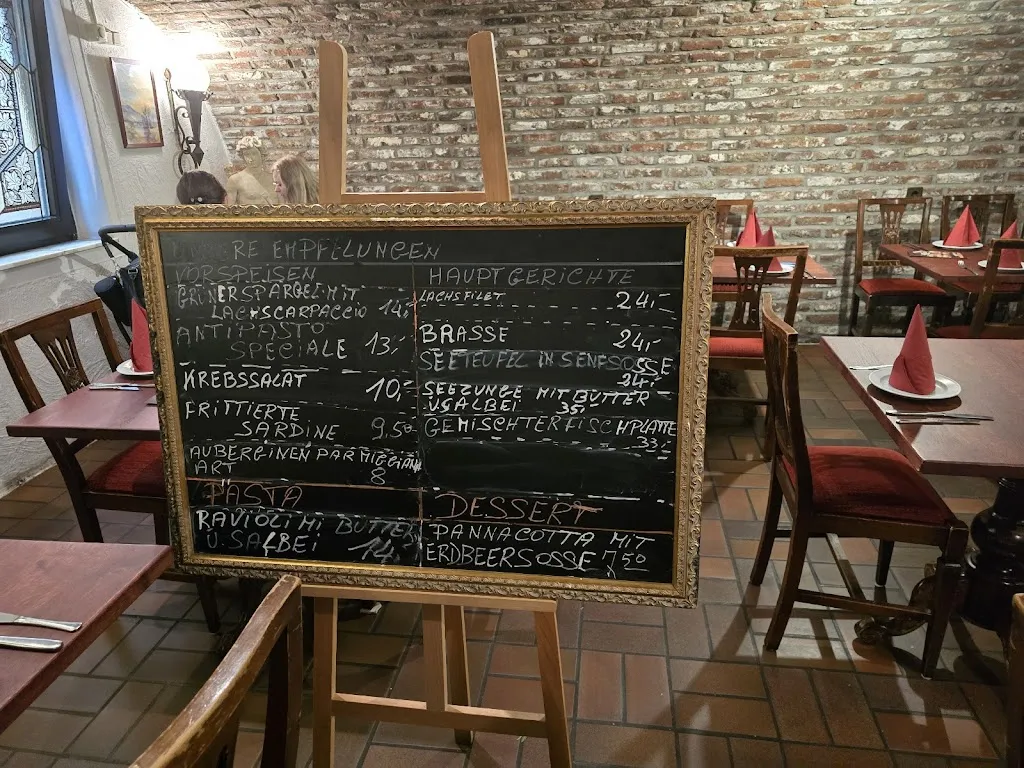 RE EMPFELUNGEN
VORSPEISEN
GRÜNERSPARGEL MIT
LACHSCARPACCIO 14,-
ANTIPASTO
SPECIALE 13,-
KREBSSALAT 10,-
FRITTIERTE
SARDINE 9,50
AUBERGINEN PARMIGGIAN
ART 8
PASTA
RAVIOLI MI BUTTER
U.SALBEI 14,-
HAUPTGERICHTE
LACHSFILET 24,-
BRASSE 24,-
SEETEUFEL IN SENFSOSSE
24,-
SEEZUNGE MIT BUTTER
U.SALBEI 35,-
GEMISCHTER FISCHPLATTE
33,-
DESSERT
PANNACOTTA MIT
ERDBEERSOSSE 7,50